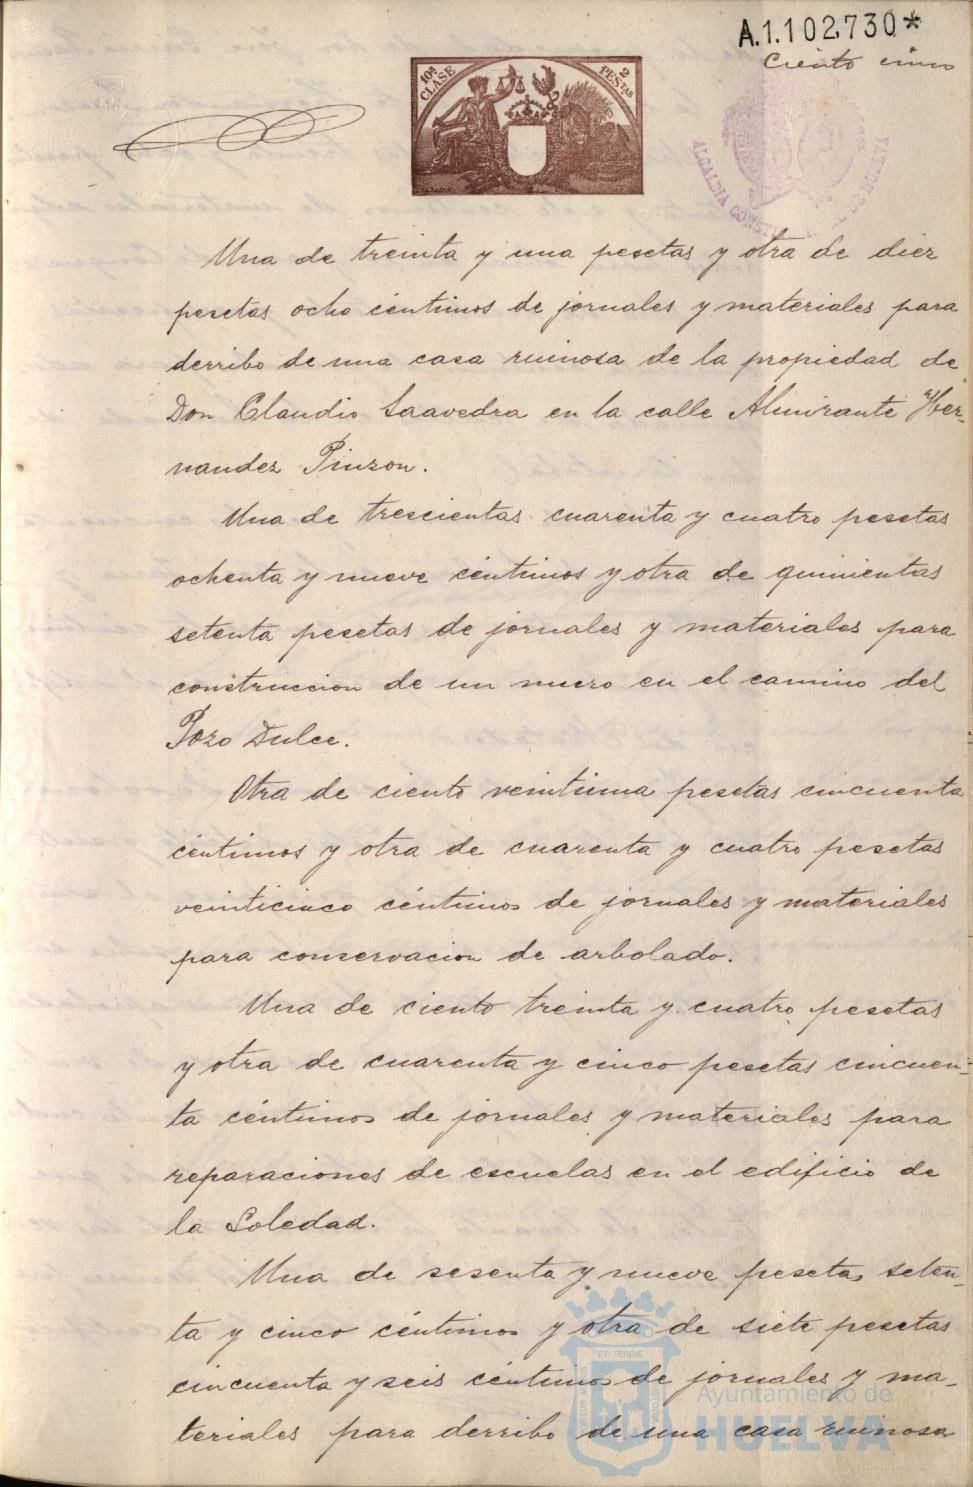 A.1.102,730*
Ciento cinco
10ª CLASE
2 PESTAS
ALCALDIA CONST HUELVA
Una de treinta y una pesetas y otra de diez
pesetas ocho céntimos de jornales y materiales para
derribo de una casa ruinosa de la propiedad de
Don Claudio Saavedra en la calle Almirante Her-
nandez Pinzon.
Una de trescientas cuarenta y cuatro pesetas
ochenta y nueve céntimos y otra de quinientas
setenta pesetas de jornales y materiales para
construccion de un muro en el camino del
Pozo Dulce.
Otra de ciento veintiuna pesetas cincuenta
céntimos y otra de cuarenta y cuatro pesetas
veinticinco céntimos de jornales y materiales
para conservacion de arbolado.
Una de ciento treinta y cuatro pesetas
y otra de cuarenta y cinco pesetas cincuen-
ta céntimos de jornales y materiales para
reparaciones de escuelas en el edificio de
la Soledad.
Una de sesenta y nueve pesetas seten-
ta y cinco céntimos y otra de siete pesetas
cincuenta y seis céntimos de jornales y ma-
teriales para derribo de una casa ruinosa
Ayuntamiento de
HUELVA